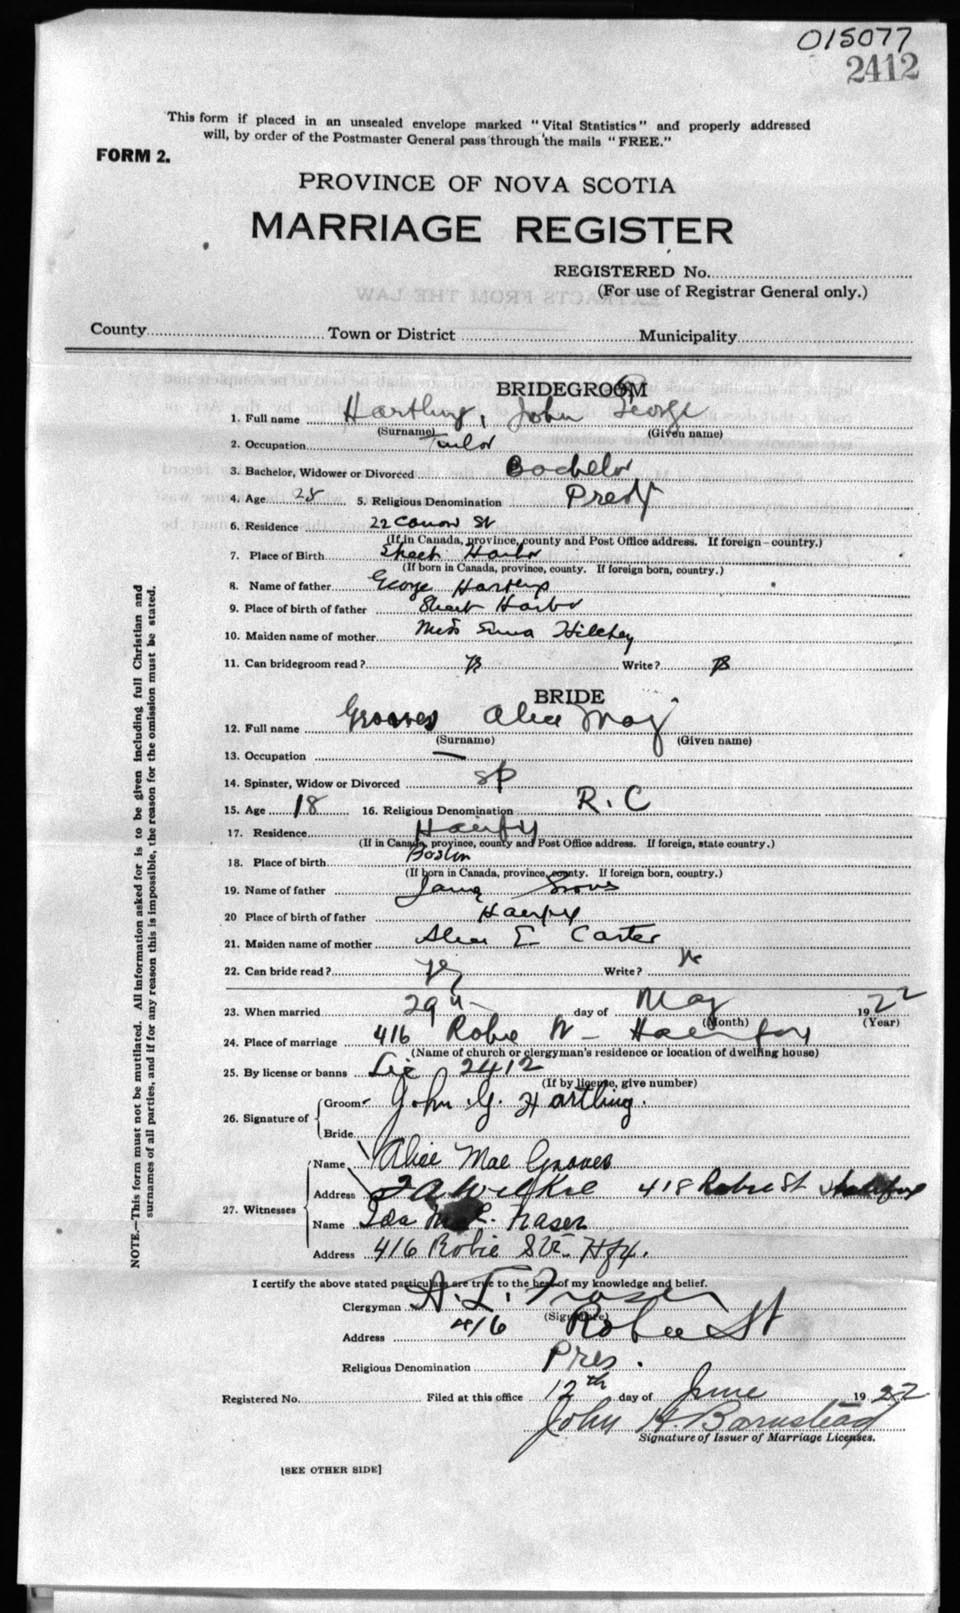 015077
2412
This form if placed in an unsealed envelope marked "Vital Statistics" and properly addressed
will, by order of the Postmaster General pass through the mails "FREE."
FORM 2.
PROVINCE OF NOVA SCOTIA
MARRIAGE REGISTER
REGISTERED No.
(For use of Registrar General only.)
County Town or District Municipality
BRIDEGROOM
1. Full name Hartling, John George
(Surname) (Given name)
2. Occupation Tailor
3. Bachelor, Widower or Divorced Bachelor
4. Age 28 5. Religious Denomination Presby
6. Residence 22 St
(If in Canada, province, county and Post Office address. If foreign—country.)
7. Place of Birth Sheet Harbor
(If born in Canada, province, county. If foreign born, country.)
8. Name of father George Hartling
9. Place of birth of father Sheet Harbor
10. Maiden name of mother Miss Hilchey
11. Can bridegroom read? Write?
BRIDE
12. Full name Groaves Alice May
(Surname) (Given name)
13. Occupation —
14. Spinster, Widow or Divorced Sp
15. Age 18 16. Religious Denomination R.C
17. Residence Halifax
(If in Canada, province, county and Post Office address. If foreign, state country.)
18. Place of birth Boston
(If born in Canada, province, county. If foreign born, country.)
19. Name of father James
20 Place of birth of father Halifax
21. Maiden name of mother Alice E Carter
22. Can bride read? Write?
23. When married 29th day of May 1922
(Month) (Year)
24. Place of marriage 416 Robie St - Halifax
(Name of church or clergyman's residence or location of dwelling house)
25. By license or banns Lic 2412
(If by license, give number)
26. Signature of Groom John G. Hartling.
Bride
27. Witnesses Name Alice Mae Groves
Address J A Wilkie 418 Robie St Halifax
Name Ida Fraser
Address 416 Robie St. Hfx.
I certify the above stated particulars are true to the best of my knowledge and belief.
Clergyman A. L. Fraser
(Signature)
Address 416 Robie St
Religious Denomination Pres.
Registered No. Filed at this office 12th day of June 1922
John H. Barnstead
Signature of Issuer of Marriage Licenses.
[SEE OTHER SIDE]
NOTE.—This form must not be mutilated. All information asked for is to be given including full Christian and
surnames of all parties, and if for any reason this is impossible, the reason for the omission must be stated.